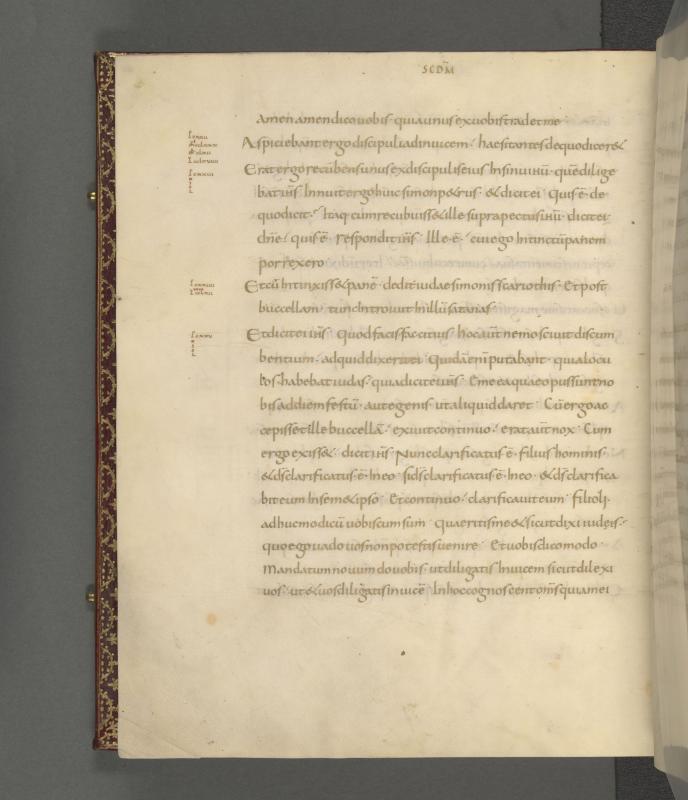 SCDM
amen amen dico vobis quia unus ex vobis tradet me
Aspiciebant ergo discipuli ad invicem haesitantes de quo dicer&
Erat ergo recubens unus ex discipulis eius In sinu ihu quē dilige
bat ihs Innuit ergo huic simon p&rus & dicit ei Quis ē de
quo dicit Itaq cum recubuiss& ille supra pectus ihu dicit ei
dñe quis ē respondit ihs Ille ē cui ego Intinctū panem
porrexero
Et cū Intinxiss& panē dedit iudae simonis scariothis Et post
buccellam tunc Introivit In illū satanas
Et dicit ei ihs Quod facis fac citius hoc aūt nemo scivit discum
bentium ad quid dixerit ei Quidā enī putabant quia locu
los habebat iudas quia dicit ei ihs Eme ea quae opus sunt no
bis ad diem festū aut egenis ut aliquid daret Cū ergo ac
cepisset ille buccellā exivit continuo erat aūt nox Cum
ergo exiss& dicit ihs Nunc clarificatus ē filius hominis
& ds clarificatus ē In eo si ds clarificatus ē In eo & ds clarifica
bit eum In sem&ipso Et continuo clarificavit eum filioli
adhuc modicū vobiscum sum Quaeritis me & sicut dixi iudeis
quo ego vado vos non potestis venire Et vobis dico modo
Mandatum novum do vobis ut diligatis Invicem sicut dilexi
vos ut & vos diligatis invicē In hoc cognoscent omš quia mei